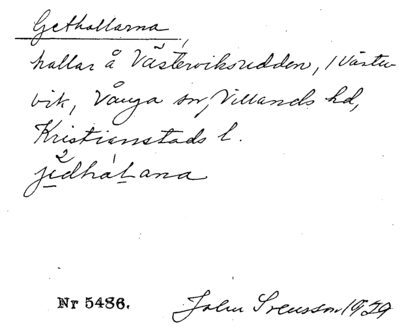 Gethallarna,
hallar å Västerviksudden, 1 Väster-
vik, Vånga sn, Villands hd,
Kristianstads l.
Nr 5486. John Svensson 1929